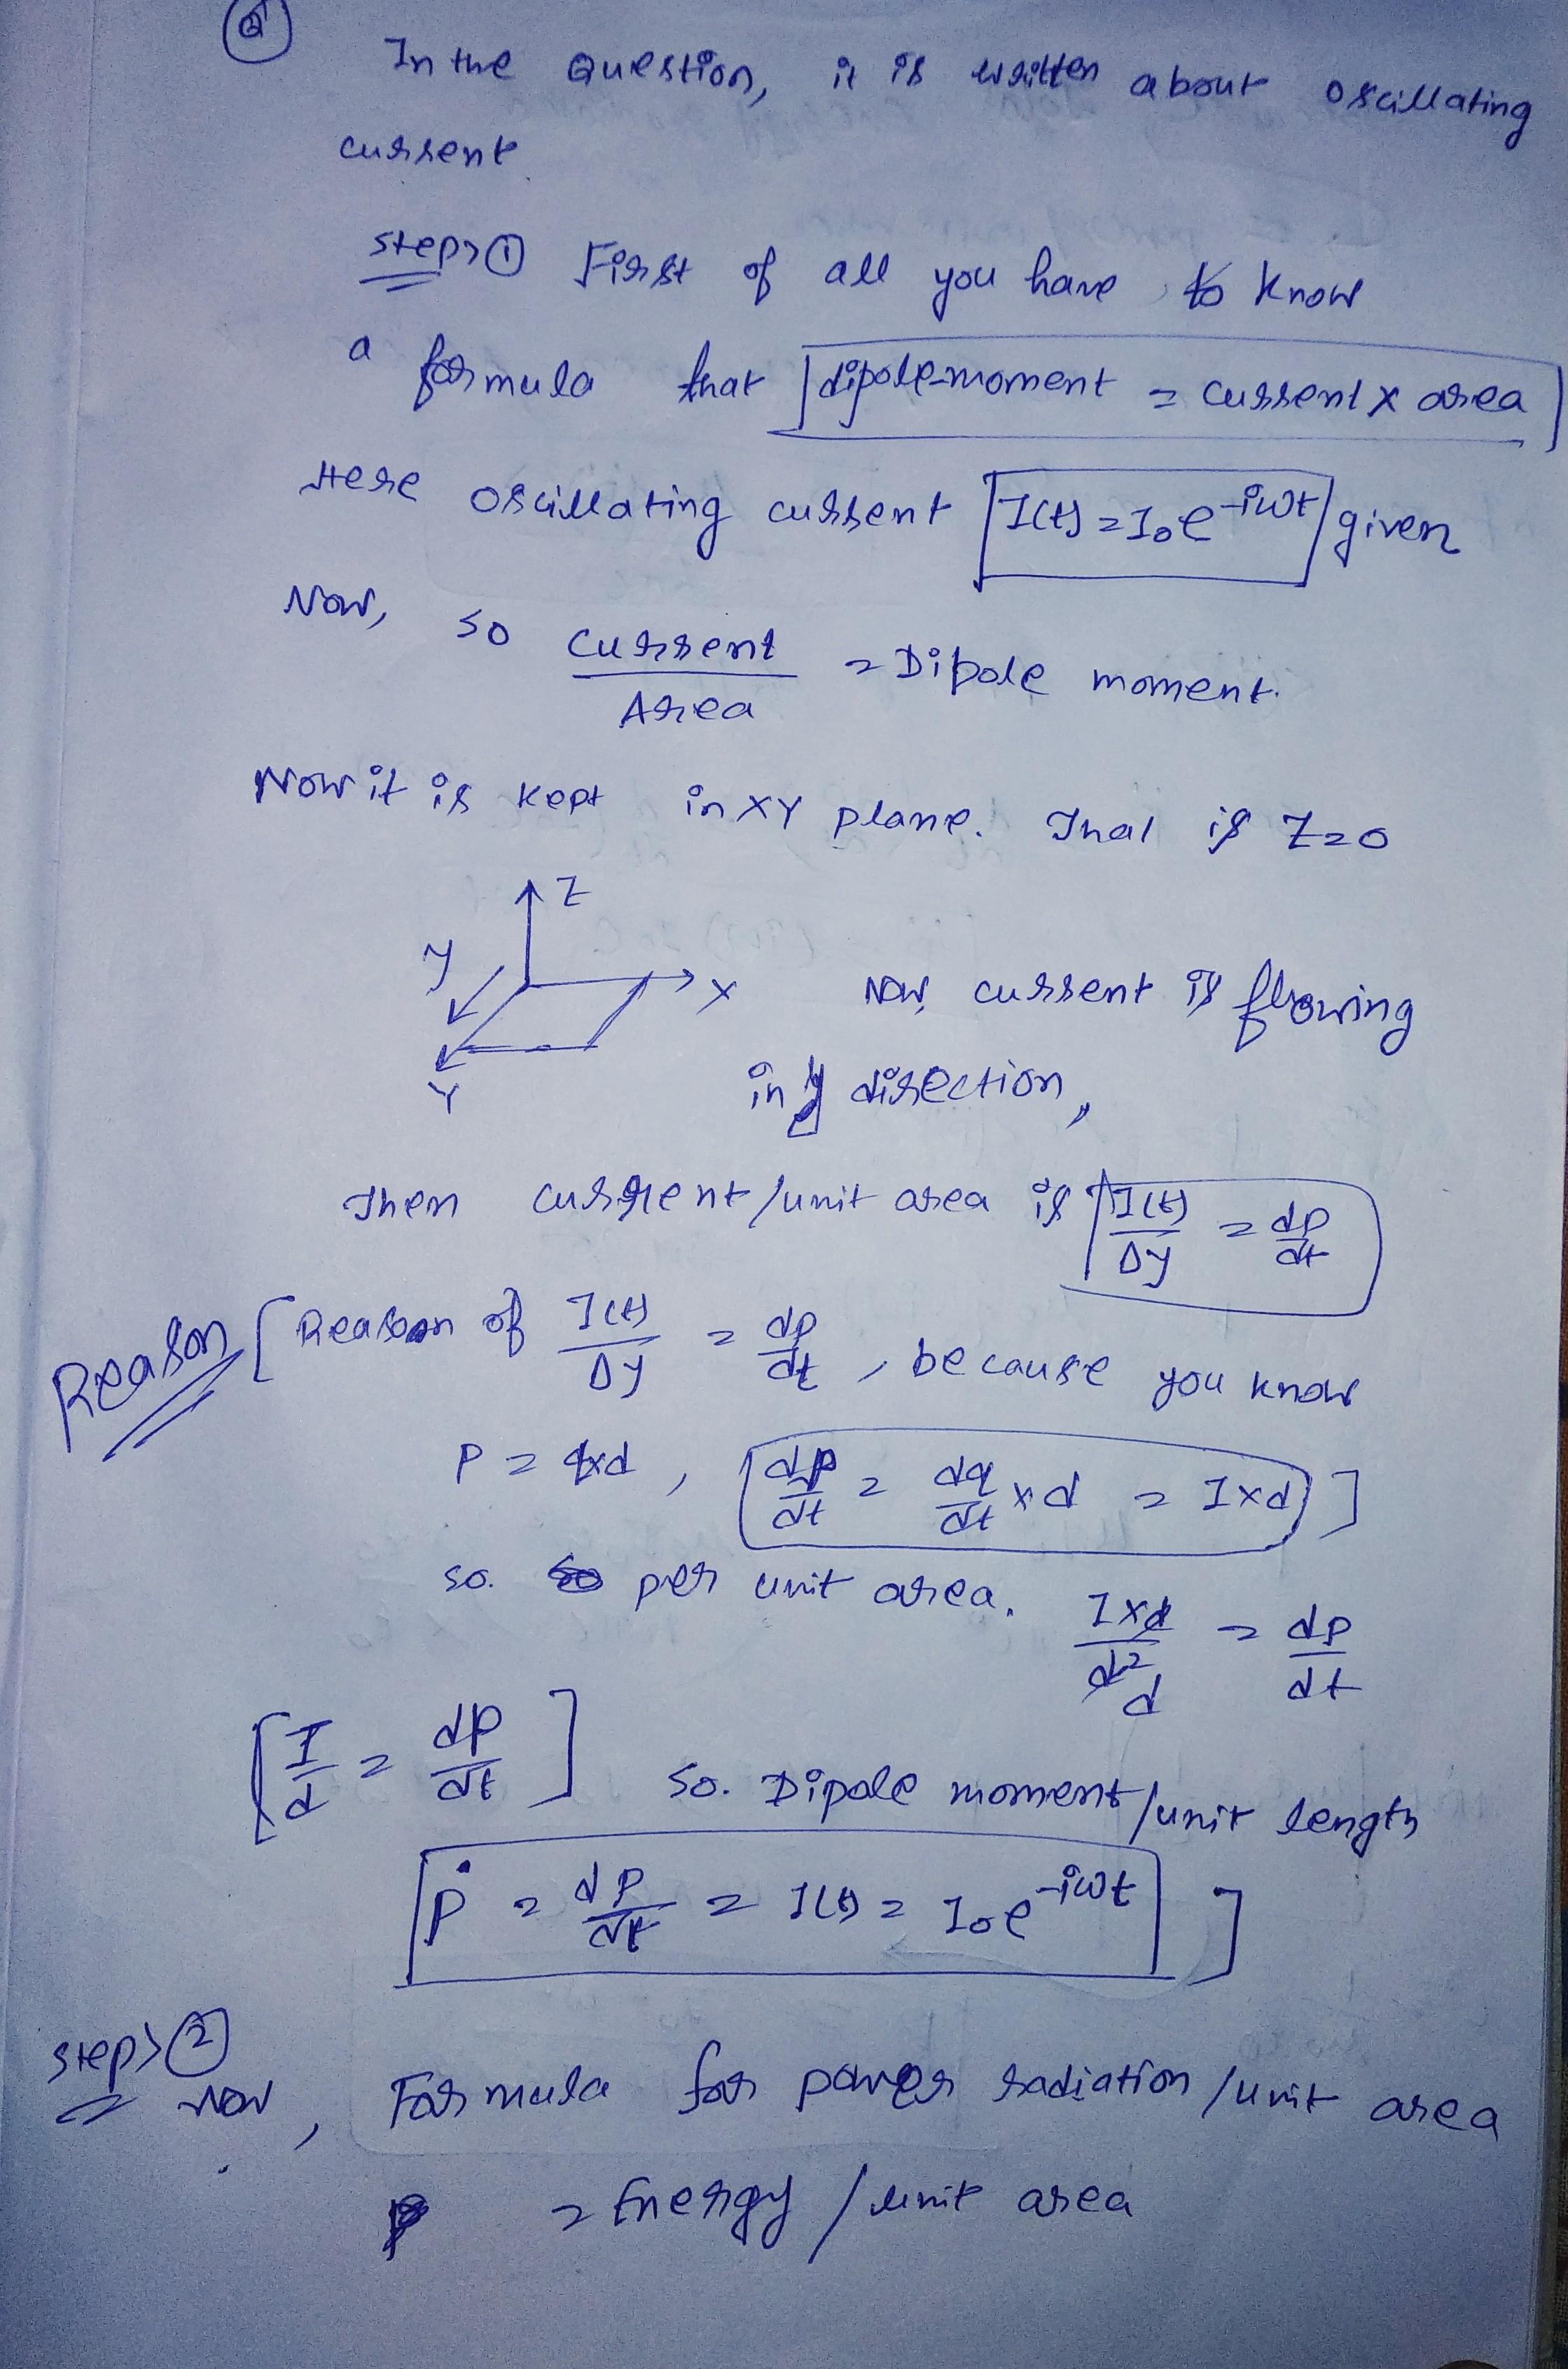 Q
In the Question, it is written about oscillating
current
step> ① First of all you have to know
a formula that dipole-moment = current x area
Here oscillating current I(t) = I₀e^-iωt given
Now, so Current / Area = Dipole moment.
Now it is kept in XY plane. That is Z=0
Z
y
X Now, current is flowing
Y in y direction,
Then current/unit area is I(t)/Δy = dp/dt
Reason [Reason of I(t)/Δy = dp/dt, because you know
P = qxd, dp/dt = dq/dt x d = I x d ]
so. so per unit area. I x d / d² d = dp/dt
[ I/d = dp/dt ] so. Dipole moment/unit length
ṗ = dp/dt = I(t) = I₀e^-iωt ]
step> ②
Now, Formula for power radiation/unit area
= Energy / unit area